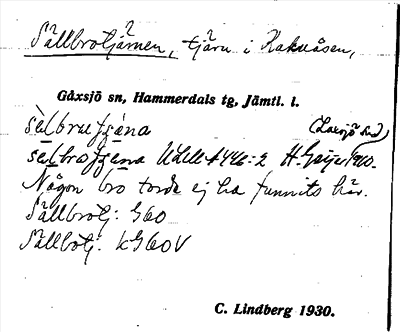 Sällbrotjärnen, tjärn i Haknåsen,
Gåxsjö sn, Hammerdals tg, Jämtl. l.
sèlbruʃʃǽna
(Laxsjö sn)
ULMA 446:2 H. Geijer 1910.
Någon bro torde ej ha funnits här.
Sällbrotj: G60
Sällbotj: kG60V
C. Lindberg 1930.